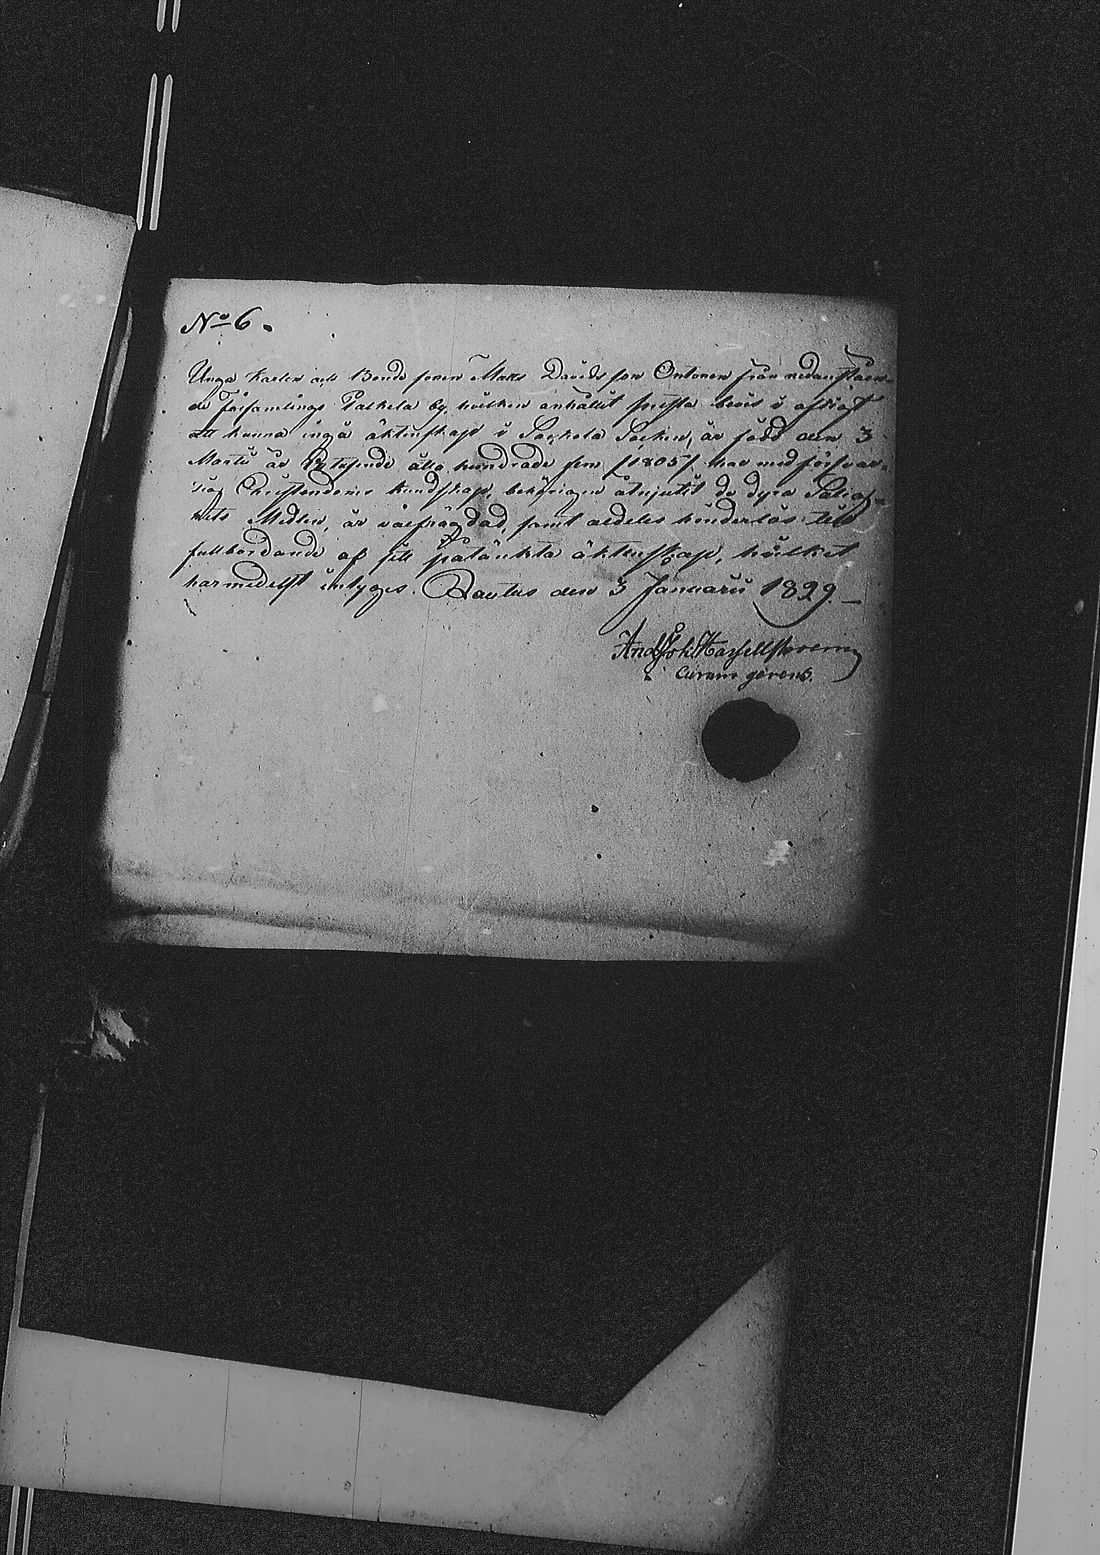 No 6.
Unga Karlen och Bonde sonen Matts Davidsson Ontonen från nedanståen-
de Församlings Palkela by, hvilken anhållit prestebevis i afsigt
att kunna ingå äktenskap i Sackola Socken, är född den 3
Martii år Ettusende åtta hundrade fem /1805/ har med försvar-
lig Christendoms kundskap, behörigen åtnjutit de dyra Salig-
hets Medlen, är väl frägdad, samt aldeles hinderlös till
fullbordande af sitt påtänkta äktenskap, hvilket
härmedelst intygas. Rautus den 3 Januarii 1829.
And. Joh. Hassellstrom
Curam gerens.